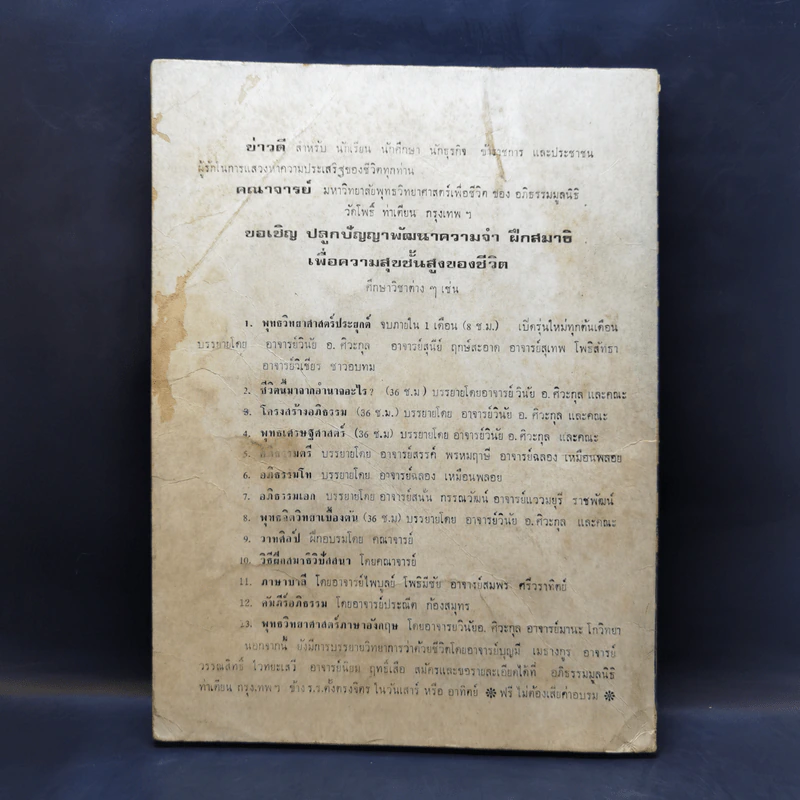 ข่าวดี สำหรับ นักเรียน นักศึกษา นักธุรกิจ ข้าราชการ และประชาชน
ผู้รักในการแสวงหาความประเสริฐของชีวิตทุกท่าน
คณาจารย์ มหาวิทยาลัยพุทธวิทยาศาสตร์เพื่อชีวิต ของ อภิธรรมมูลนิธิ
วัดโพธิ์ ท่าเตียน กรุงเทพ ฯ
ขอเชิญ ปลูกปัญญาพัฒนาความจำ ฝึกสมาธิ
เพื่อความสุขชั้นสูงของชีวิต
ศึกษาวิชาต่าง ๆ เช่น
1. พุทธวิทยาศาสตร์ประยุกต์ จบภายใน 1 เดือน (8 ช.ม.) เปิดรุ่นใหม่ทุกต้นเดือน
บรรยายโดย อาจารย์วินัย อ. ศิวะกุล อาจารย์สุนีย์ ฤกษ์สะอาด อาจารย์สุเทพ โพธิสัทธา
อาจารย์วิเชียร ชาวอบทม
2. ชีวิตนี้มาจากอำนาจอะไร? (36 ช.ม) บรรยายโดยอาจารย์วินัย อ. ศิวะกุล และคณะ
3. โครงสร้างอภิธรรม (36 ช.ม.) บรรยายโดย อาจารย์วินัย อ. ศิวะกุล และคณะ
4. พุทธเศรษฐศาสตร์ (36 ช.ม) บรรยายโดย อาจารย์วินัย อ. ศิวะกุล และคณะ
5. อภิธรรมตรี บรรยายโดย อาจารย์สรรค์ พรหมฤาษี อาจารย์ฉลอง เหมือนพลอย
6. อภิธรรมโท บรรยายโดย อาจารย์ฉลอง เหมือนพลอย
7. อภิธรรมเอก บรรยายโดย อาจารย์สนั่น กรรณวัฒน์ อาจารย์แววมยุรี ราชพัฒน์
8. พุทธจิตวิทยาเบื้องต้น (36 ช.ม) บรรยายโดย อาจารย์วินัย อ. ศิวะกุล และคณะ
9. วาทศิลป์ ฝึกอบรมโดย คณาจารย์
10. วิธีฝึกสมาธิวิปัสสนา โดยคณาจารย์
11. ภาษาบาลี โดยอาจารย์ไพบูลย์ โพธิมีชัย อาจารย์สมพร ศรีวราทิตย์
12. คัมภีร์อภิธรรม โดยอาจารย์ประณีต ก้องสมุทร
13. พุทธวิทยาศาสตร์ภาษาอังกฤษ โดยอาจารย์วินัยอ. ศิวะกุล อาจารย์มานะ โกวิทยา
นอกจากนี้ ยังมีการบรรยายวิทยาการว่าด้วยชีวิตโดยอาจารย์บุญมี เมธางกูร อาจารย์
วรรณสิทธิ์ ไวทยะเสวี อาจารย์นิยม ฤทธิ์เสือ สมัครและขอรายละเอียดได้ที่ อภิธรรมมูลนิธิ
ท่าเตียน กรุงเทพฯ ข้าง ร.ร.ตั้งตรงจิตร ในวันเสาร์ หรือ อาทิตย์ ❋ ฟรี ไม่ต้องเสียค่าอบรม ❋